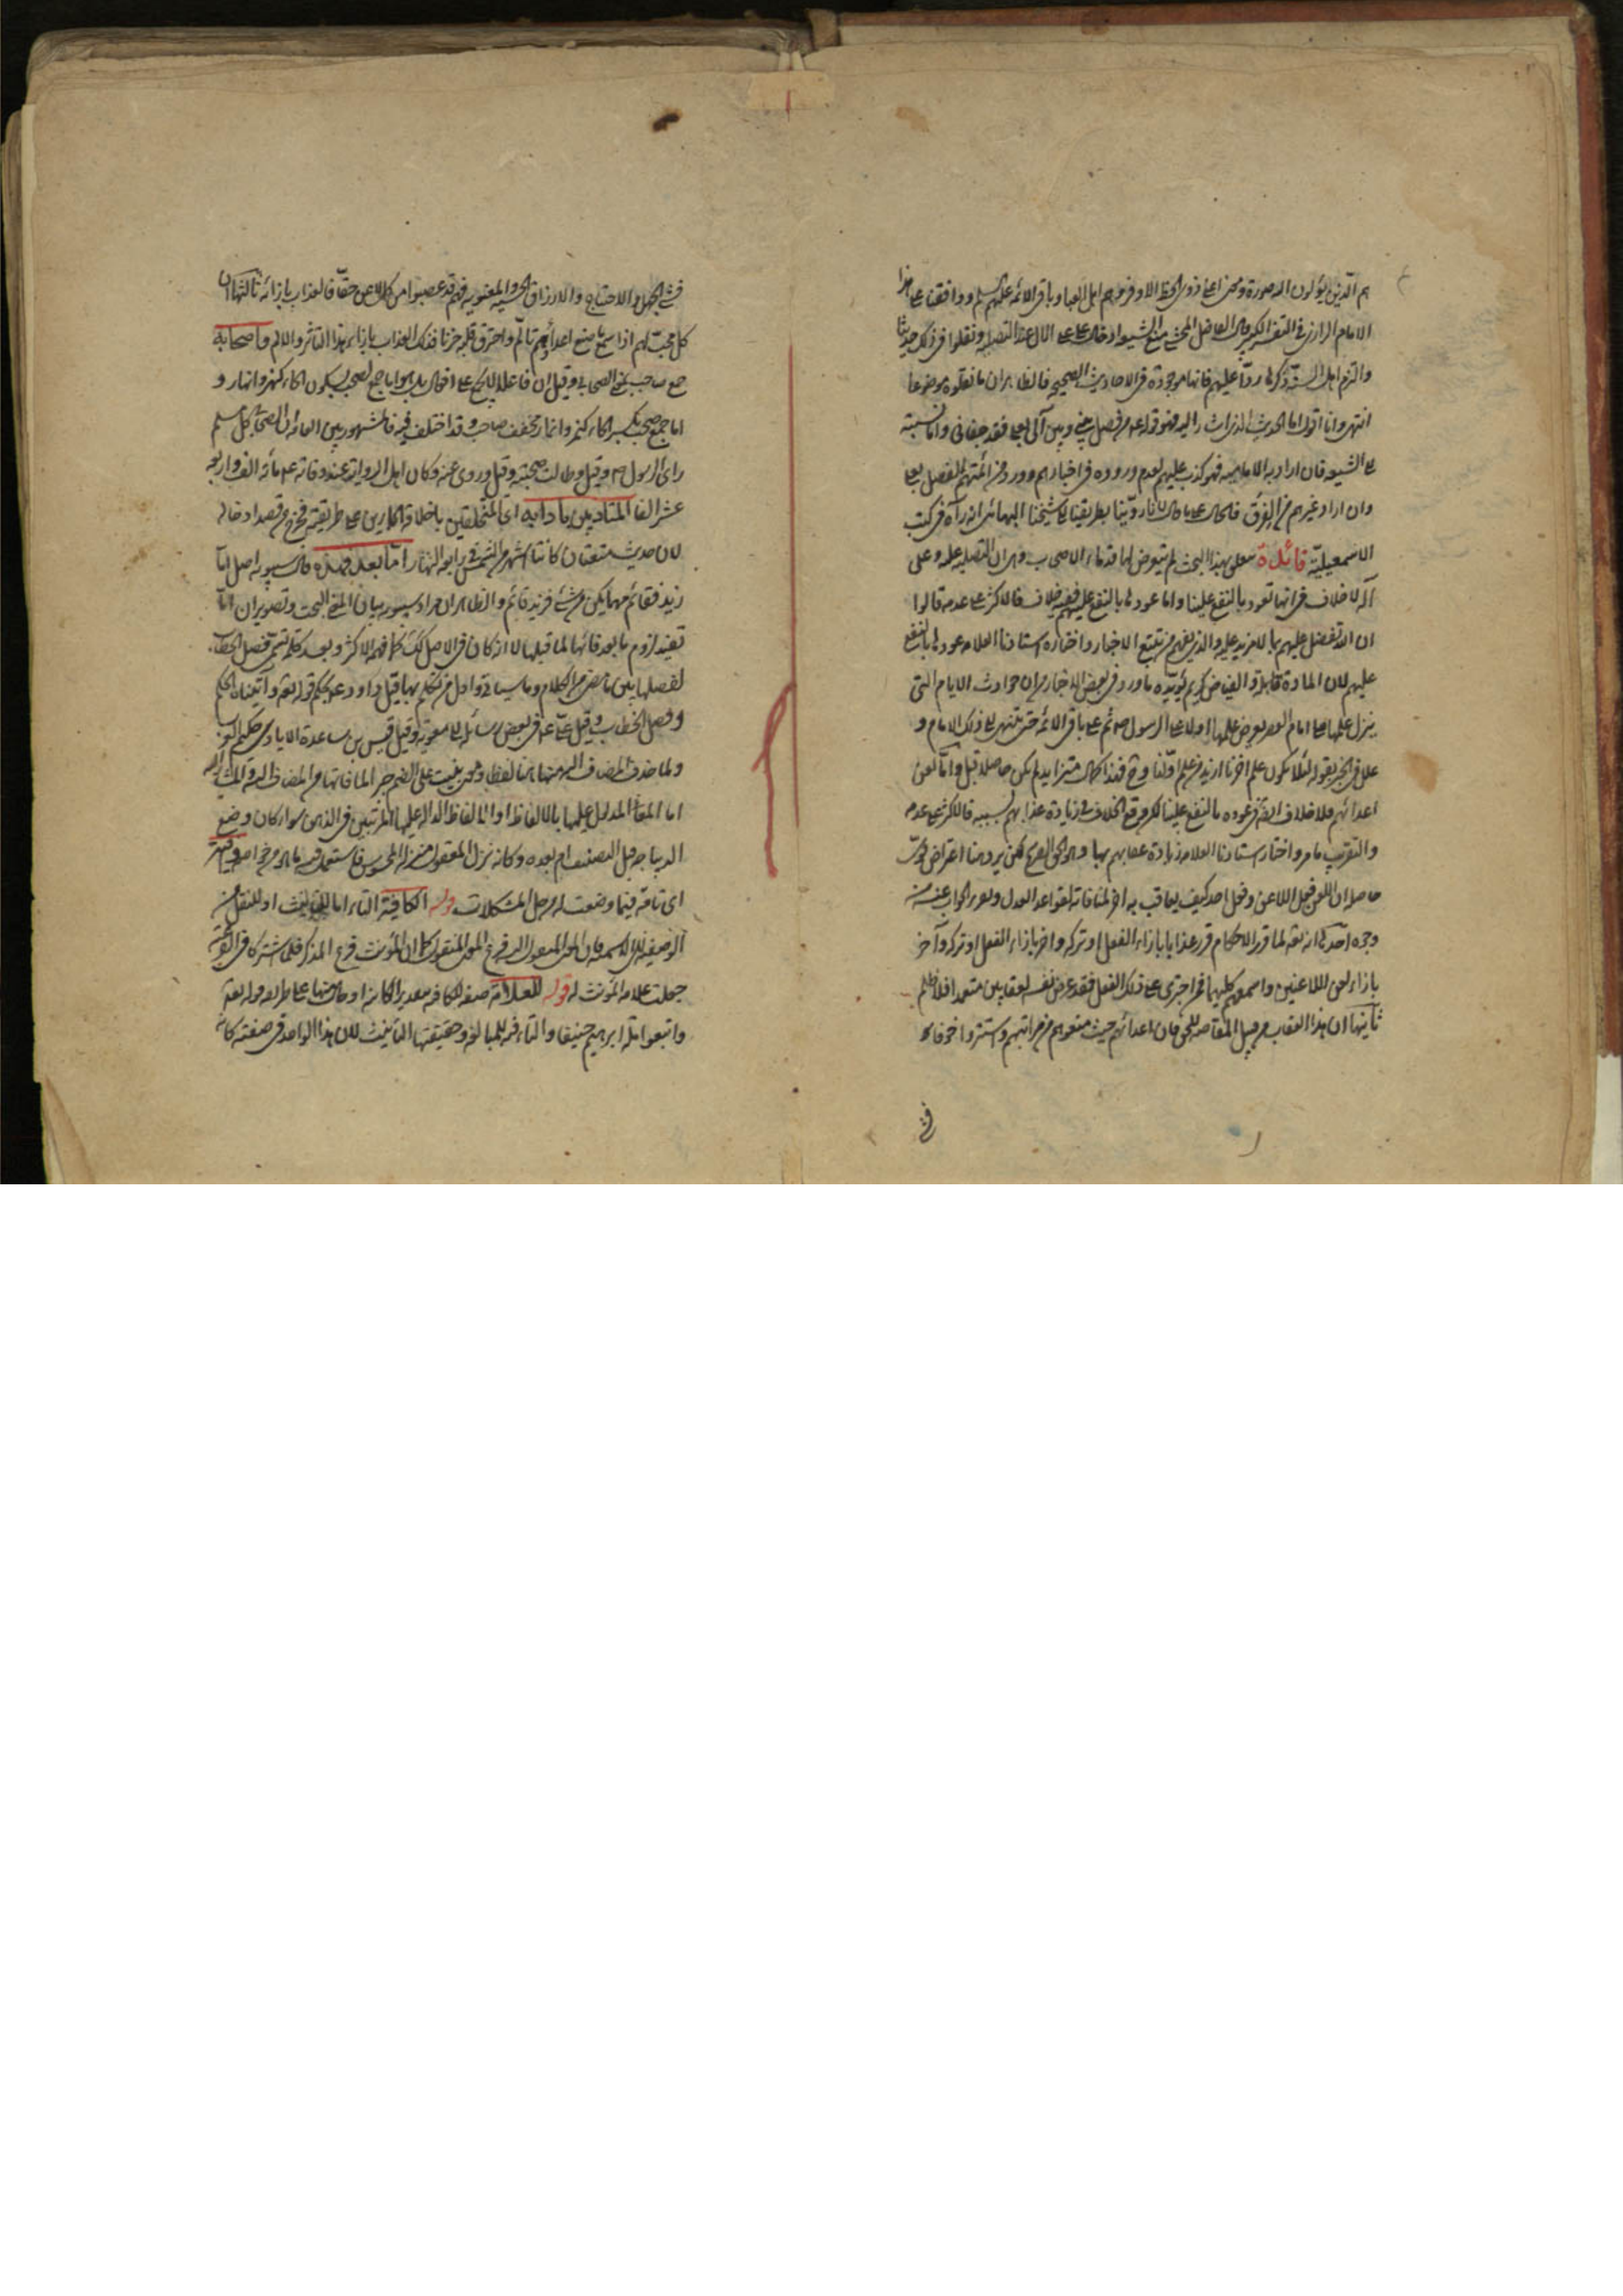 هم الذين يؤلون اليه صورة ومعنى اعاذوى الحظ الاوفر وهم اهل العبا وباقي الائمة عليهم السلم ووافقنا على هذا
الامام الرازي في التفسير الكبير قال الفاضل المحشي منع الشيعة ادخال على على الال عند التصلية ونقلوا في ذلك حديثا
والتزم اهل السنة ذكرها ردا عليهم فانها موجودة في الاحاديث الصحيحة فالظاهر ان ما نقلوه موضوعا
انتهى وانا اقول اما الحديث الذي اشار اليه فهو قوله من فصل بيني وبين آلي بعلى فقد جفاني واما نسبته
الى الشيعة فان اراد به الامامية فهو كذب عليهم لعدم وروده في اخبارهم وورود من ائمتهم الفصل بعلى
وان اراد غيرهم من الفرق فالحال على ما قال لانا روينا بطريقنا الى شيخنا البهائي انه رآه في كتب
الاسمعيلية فائدة تتعلق بهذا البحث لم يتعرض لها قدماء الاصحاب وهى ان التصلية عليه وعلى
آله لا خلاف في انها تعود بالنفع علينا واما عودها بالنفع عليهم ففيه خلاف فالاكثر على عدمه قالوا
ان الله تفضل عليهم بما لا مزيد عليه والذي يفهم من تتبع الاخبار واختاره استادنا العلامه عودها بالنفع
عليهم لان المادة قابلة والفياض كريم يؤيده ما ورد في بعض الاخبار من ان حوادث الايام التي
ينزل علمها على امام العصر يعرض علمها اولا على الرسول ص ثم على باقي الائمة حتى تنتهي الى ذلك الامام و
علل في الخبر بقوله لئلا يكون علم آخرنا ازيد من علم اولنا وح فهذا كمال متزايد لم يكن حاصلا قبل واما لعن
اعدائهم فلا خلاف ايضا في عوده بالنفع علينا لكن وقع الخلاف في زيادة عذابهم بسببه فالاكثر على عدمه
والتقريب ما مر واختار استادنا العلامه زيادة عقابهم بها وهو الحق الصريح لكن يرد هنا اعتراض قوي
حاصله ان اللعن فعل اللاعن وفعل احد كيف يعاقب به آخر لمنافاته لقواعد العدل ويمكن الجواب عنه من
وجوه احدها انه تعالى لما قرر الاحكام قرر عذابا بازاء الفعل او تركه وآخر بازاء الفعل او تركه وآخر
بازاء لعن اللاعنين واسمعهم كليهما فمن اجترى على ذلك الفعل فقد عرض نفسه لعقابين متعمدا فلا ظلم
ثانيها ان هذا العقاب من قبيل المقاصة للحق فان اعدائهم حيث منعوهم من مراتبهم واستتروا خوفا كا
في
في الجهل والاحتياج والارزاق الحسية والمعنوية فهم قد غصبوا من كل لاعن حقا فالعذاب بازائه ثالثها ان
كل محب لهم اذا سمع ما صنع اعدائهم تألم واحترق قلبه حزنا فذلك العذاب بازاء هذا التأثر والالم واصحابه
جمع صاحب بمعنى الصحابي وقيل ان فاعلا لا يجمع على افعال بل هو اما جمع لصحب بسكون الحاء كنهر وانهار و
اما جمع صحب بكسر الحاء كنمر وانمار مخفف صاحب وقد اختلف فيه فالمشهور بين العامة ان الصحابي كل مسلم
رأى الرسول ص وقيل وطالت صحبته وقيل وروى عنه وكان اهل الرواية عند وفاته ع مائة الف واربعة
عشر الفا المتأدبين بآدابه اى المتخلقين باخلاقه الجارين على طريقته فخرج من قصد ادخاله
لان حديث متعتان كانتا اشهر من الشمس في رابعة النهار اما بعد فهذه قال سيبويه اصل اما
زيد فقائم مهما يكن من شئ فزيد قائم والظاهر ان مراد سيبويه بيان المعنى البحت وتصوير ان اما
تفيد لزوم ما بعد فائها لما قبلها لا انه كان في الاصل كذلك كما فهمه الاكثر وبعد كلمة تسمى فصل الخطاب
لفصلها بين ما مضى من الكلام وما سيأتي واول من تكلم بها قيل داود ع بحكم قوله تعالى وآتيناه الحكم
وفصل الخطاب وقيل على ع في بعض رسائله الى معوية وقيل قيس بن ساعدة الايادي حكيم العرب
ولما حذف المضاف اليه منها لفظا ونوى بنيت على الضم
اما المعاني المدلول عليها بالالفاظ او الالفاظ الدالة عليها المرتبين في الذهن سواء كان وضع
الديباجة قبل التصنيف ام بعده وكانه نزل المعقول منزلة المحسوس فاستعمل فيه ما هو من خواصه وافية
اى تامة فيما وضعت له من حل المشكلات قوله الكافية التاء اما للتانيث او للنقل من
الوصفية الى الاسمية فان المعنى المنقول اليه فرع المعنى المنقول كما ان المؤنث فرع المذكر فلما اشتركا في الفرعية
جعلت علامة المؤنث له قوله للعلامة صفة للكافية بتقدير الكائنة او حال منها على طريقة قوله تعالى
واتبعوا ملة ابرهيم حنيفا والتاء فيه للمبالغة وحقيقتها التأنيث لان هذا الواحد في صفته كانه